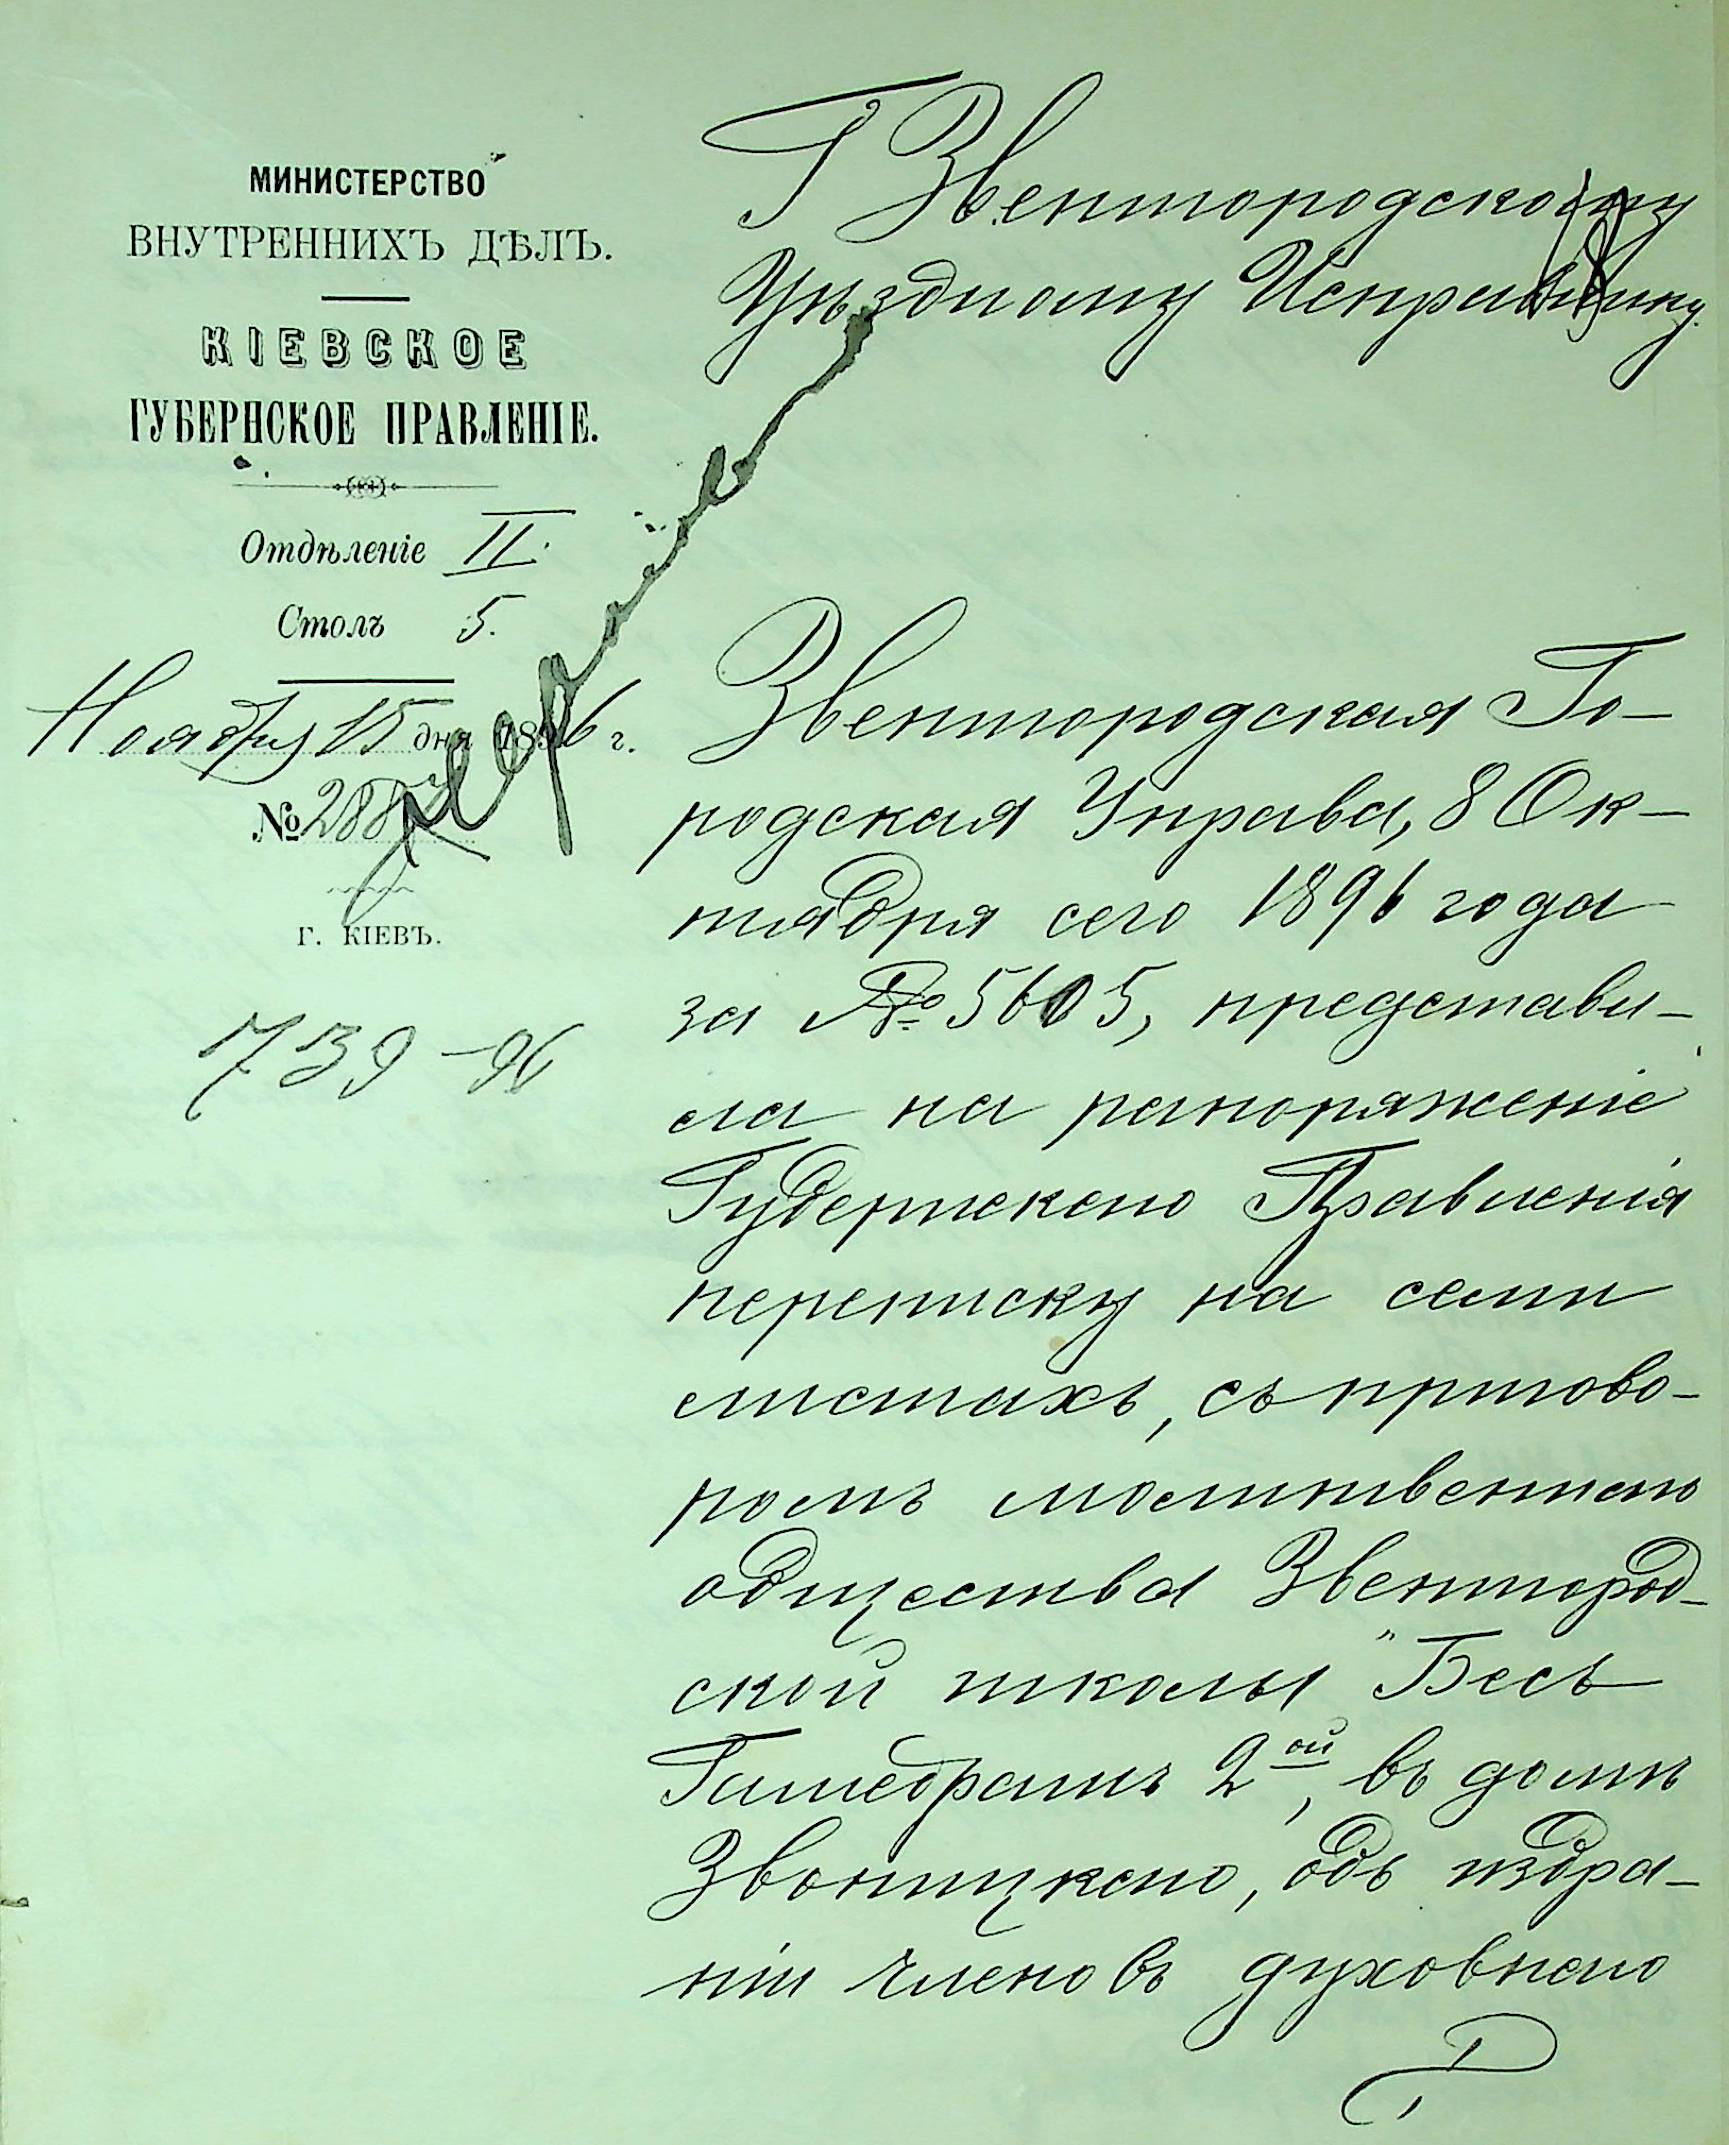 МИНИСТЕРСТВО
ВНУТРЕННИХЪ ДѢЛЪ.
КІЕВСКОЕ
ГУБЕРНСКОЕ ПРАВЛЕНІЕ.
Отдѣленіе II.
Столъ 5.
Ноября 15 дня 1896 г.
№ 288
Г. КІЕВЪ.
739-96
Г Звенигородскому
Уѣздному Исправнику.
Звенигородская Го-
родская Управа, 8 Ок-
тября сего 1896 года
за № 5605, представи-
ла на распоряженіе
Губернскаго Правленія
переписку на семи
листахъ, съ пригово-
ромъ молитвеннаго
общества Звенигород-
ской школы "Бесъ
Гамедрашъ 2ой, въ домѣ
Звоницкаго, объ избра-
ніи членовъ духовнаго